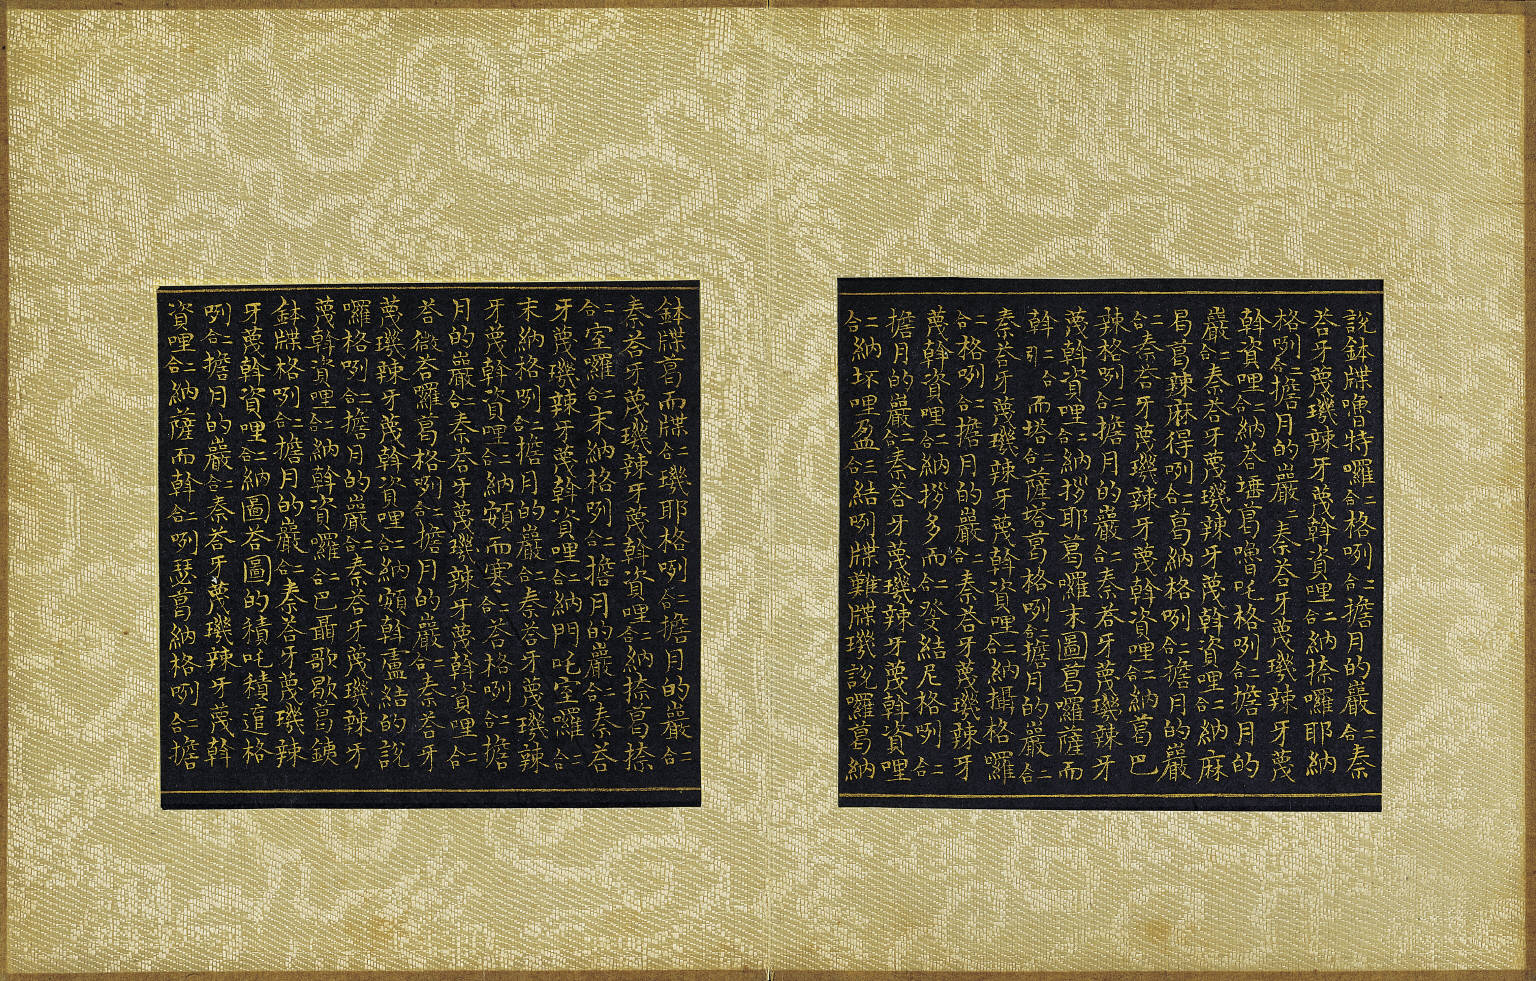 說鉢牒嚕特囉二合格咧二合擔月的巖二合秦
荅牙蔑璣辣牙蔑斡資哩二合納捺囉耶納
格咧二合擔月的巖二秦荅牙蔑璣辣牙蔑
斡資哩二合納荅埵葛嚕吒格咧二合擔月的
巖二合秦荅牙蔑璣辣牙蔑斡資哩二合納麻
曷葛辣麻得咧二合葛納格咧二合擔月的巖
二合秦荅牙蔑璣辣牙蔑斡資哩二合納葛巴
辣格咧二合擔月的巖二合秦荅牙蔑璣辣牙
蔑斡資哩二合納拶耶葛囉末圖葛囉薩而
斡二合引而塔二合薩塔葛格咧二合擔月的巖二合
秦荅牙蔑璣辣牙蔑斡資哩二合納攝格囉
二合格咧二合擔月的巖二合秦荅牙蔑璣辣牙
蔑斡資哩二合納拶多而二合癹結尼格咧二合
擔月的巖二合秦荅牙蔑璣辣牙蔑斡資哩
二合納坏哩盈三合結咧牒難牒璣說囉葛納
鉢牒葛而牒二合璣耶格咧二合擔月的巖二合
秦荅牙蔑璣辣牙蔑斡資哩二合納捺葛捺
二合室囉二合末納格咧二合擔月的巖二合秦荅
牙蔑璣辣牙蔑斡資哩二合納門吒室囉二合
末納格咧二合擔月的巖二合秦荅牙蔑璣辣
牙蔑斡資哩二合納頞而寒二合荅格咧二合擔
月的巖二合秦荅牙蔑璣辣牙蔑斡資哩二合
荅微荅囉曷格咧二合擔月的巖二合秦荅牙
蔑璣辣牙蔑斡資哩二合納頞斡盧結的說
囉格咧二合擔月的巖二合秦荅牙蔑璣辣牙
蔑斡資哩二合納斡資囉二合巴聶歌歇葛鉄
鉢牒格咧二合擔月的巖二合秦荅牙蔑璣辣
牙蔑斡資哩二合納圖荅圖的積吒積逭格
咧二合擔月的巖二合秦荅牙蔑璣辣牙蔑斡
資哩二合納薩而斡二合咧瑟葛納格咧二合擔